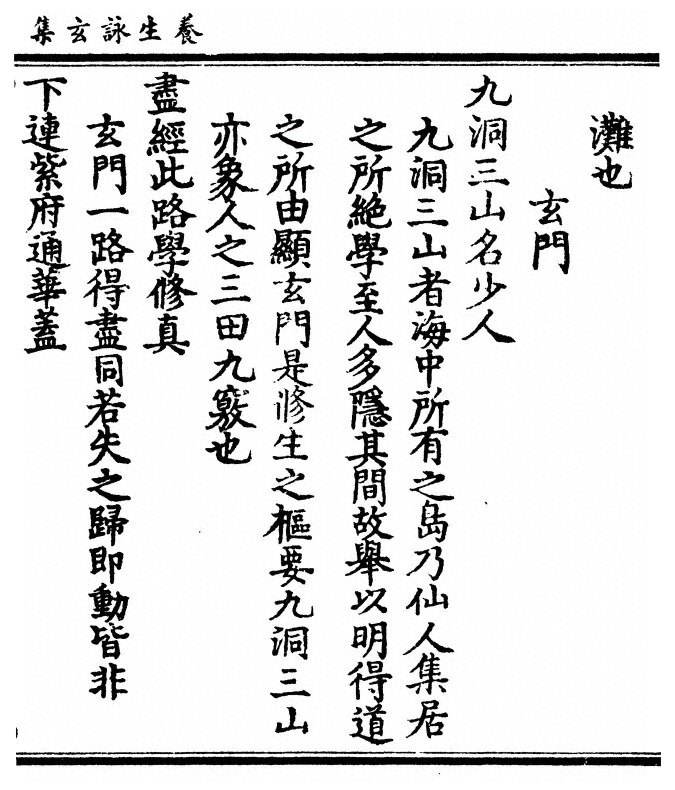 養生詠玄集
灘也
玄門
九洞三山名少人
九洞三山者海中所有之島乃仙人集居
之所絶學至人多隱其間故舉以明得道
之所由顯玄門是修生之樞要九洞三山
亦象人之三田九竅也
盡經此路學修真
玄門一路得盡同若失之歸即動皆非
下連紫府通華蓋